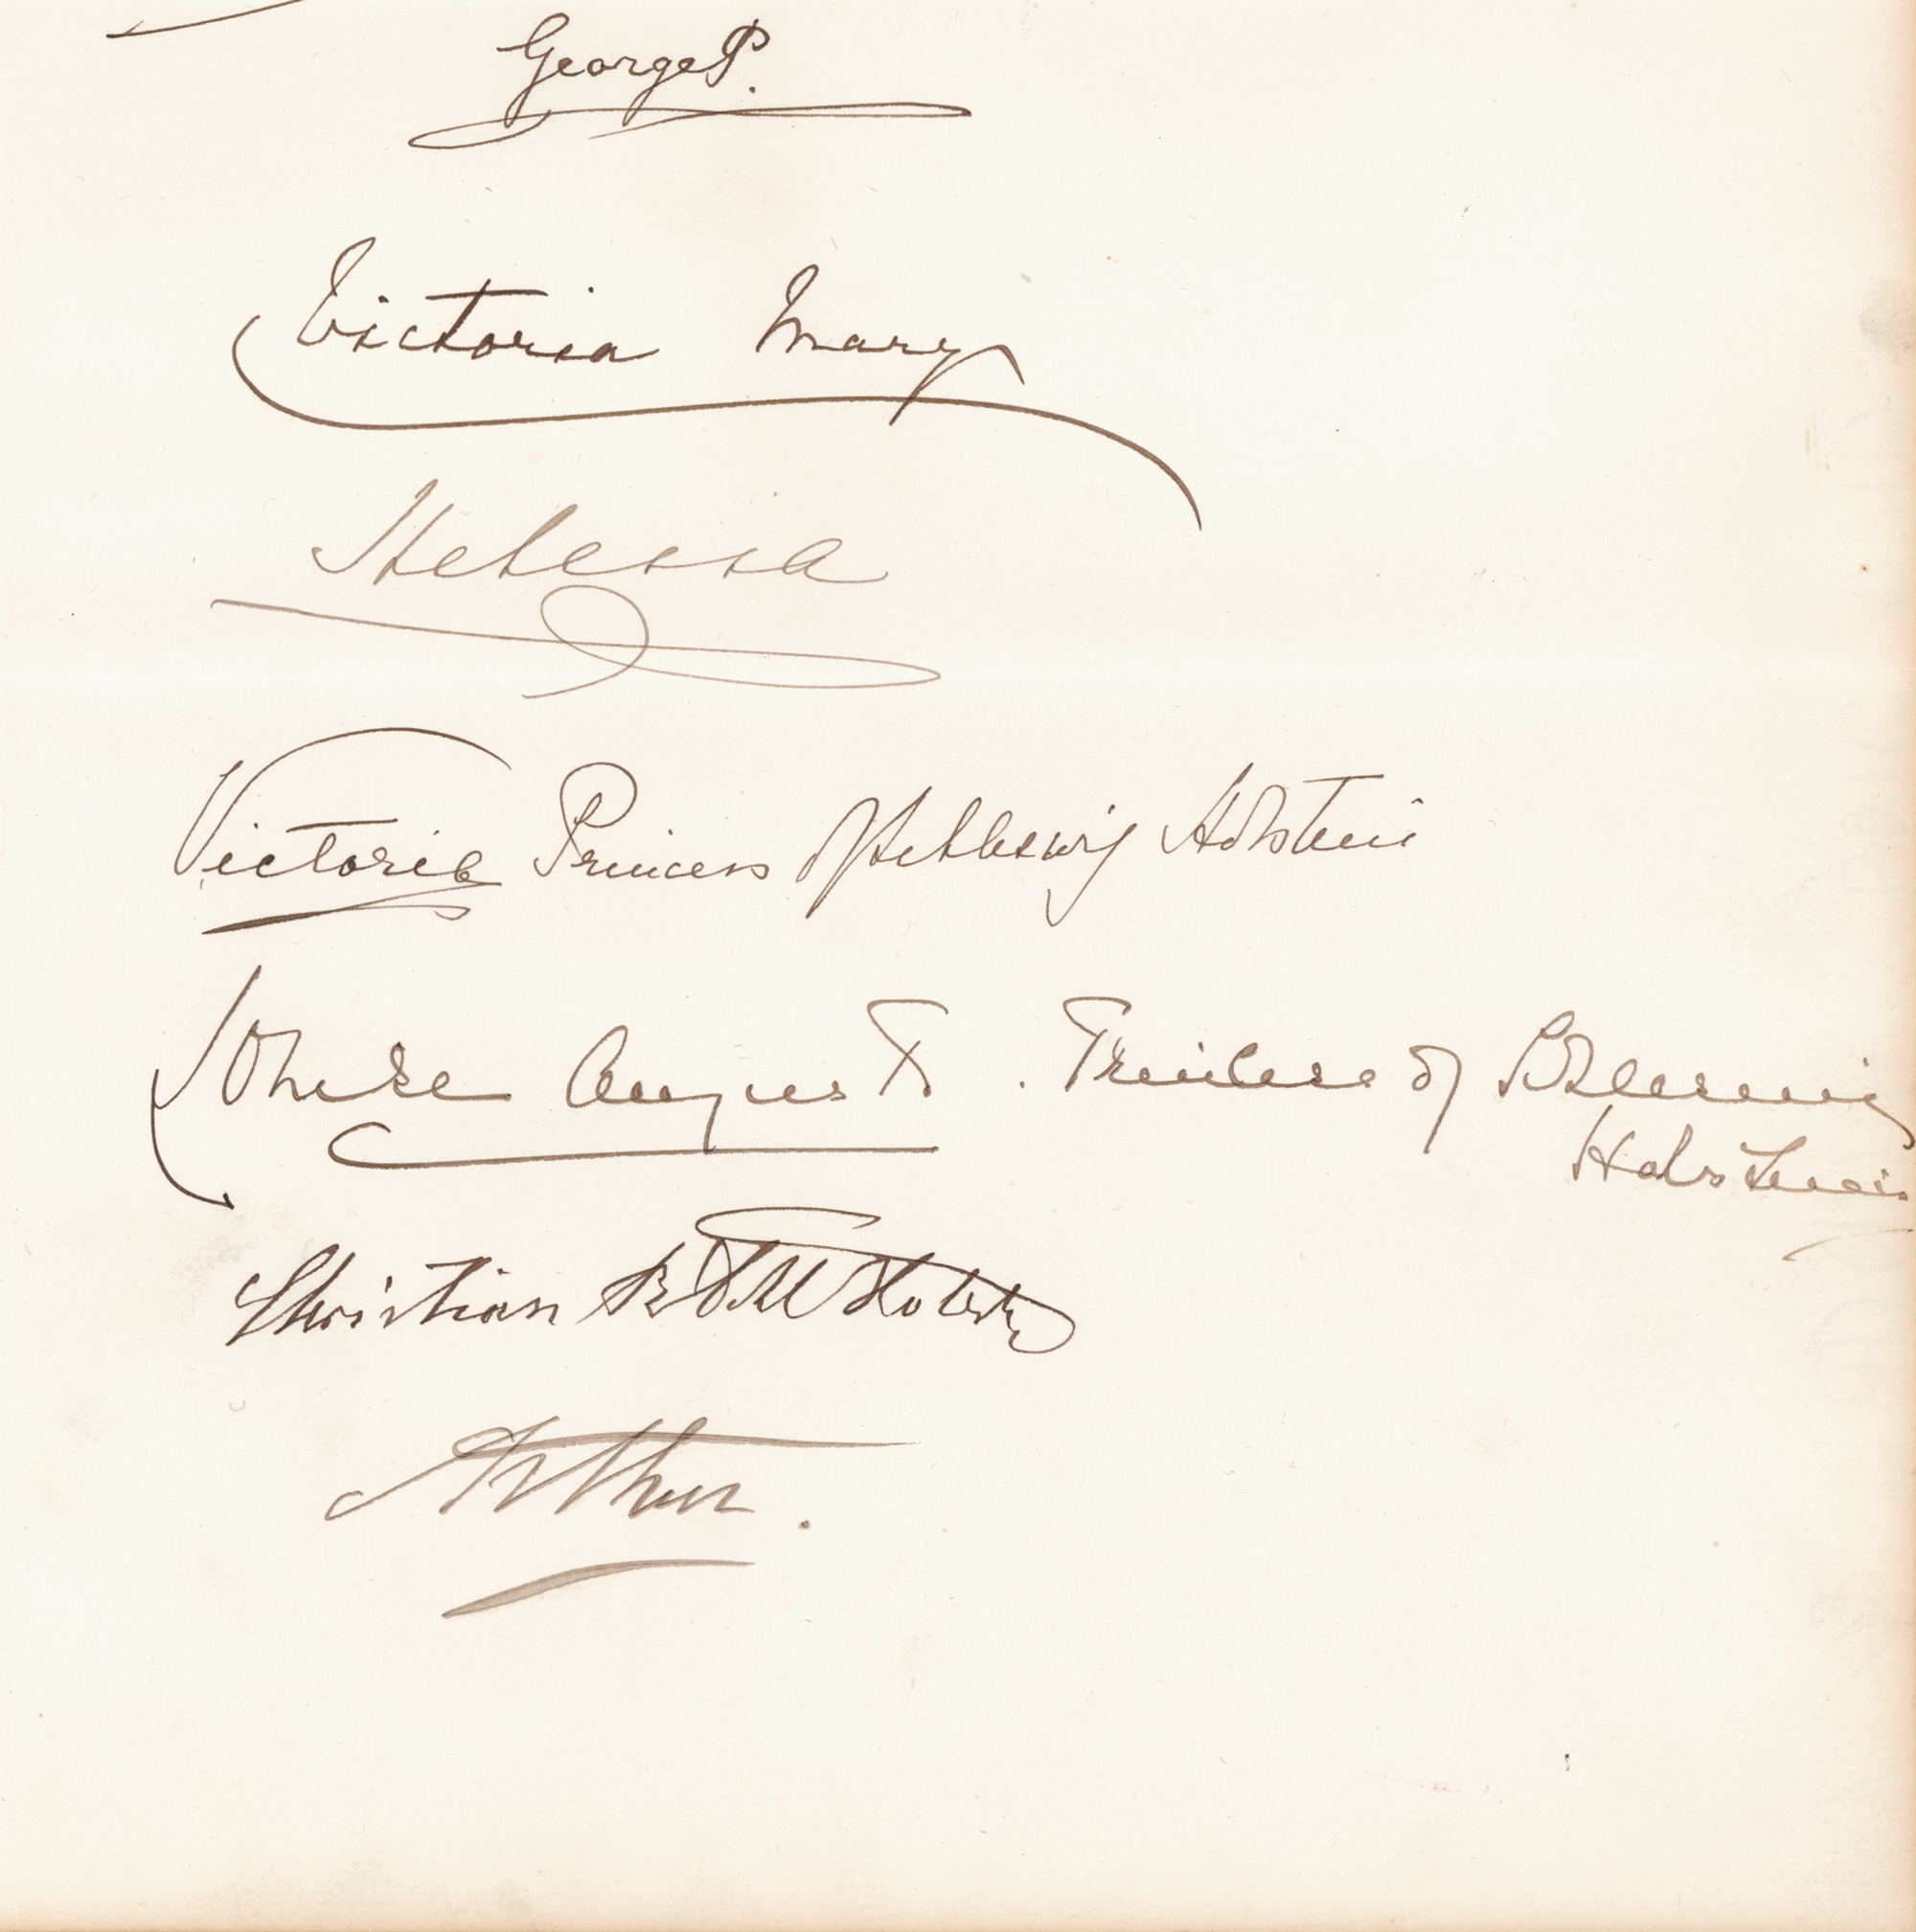 George P.
Victoria Mary
Helena
Victoria Princess of Schleswig Holstein
Louise August . Princess of Schleswig
Holstein
Christian
Arthur.